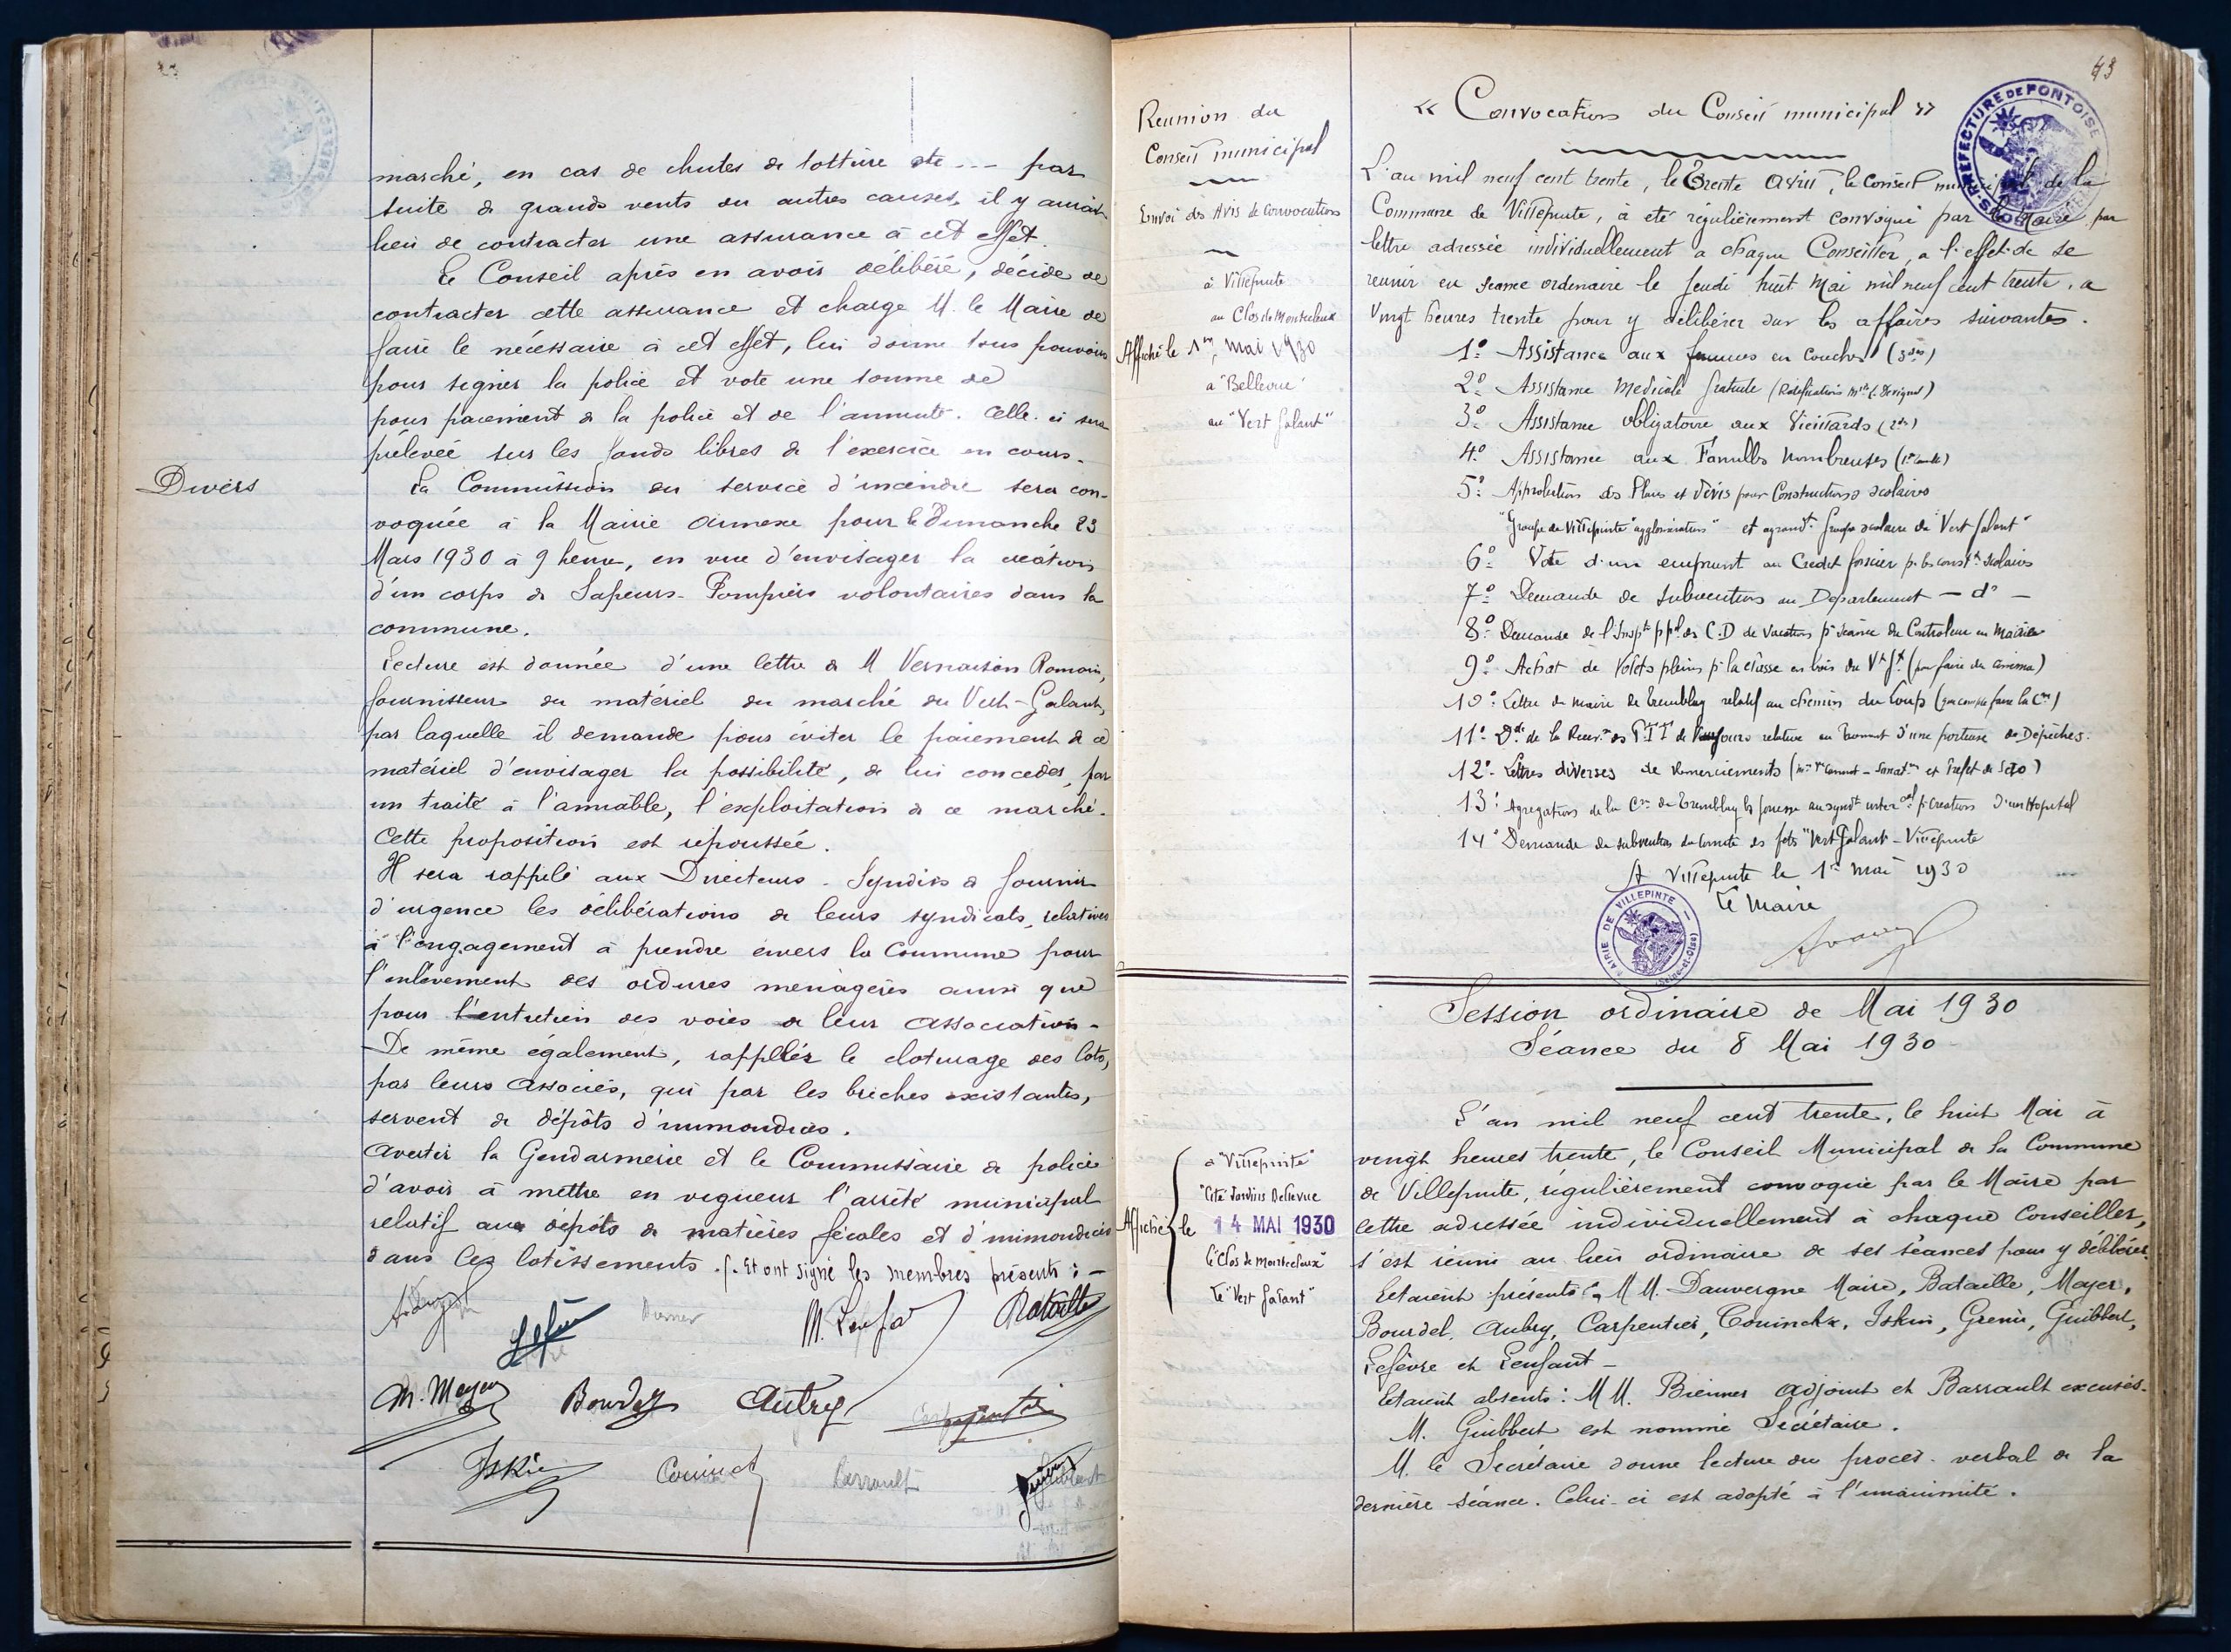 marché, en cas de chutes de toiture etc --- par
suite de grands vents ou autres causes, il y aurait
lieu de contracter une assurance à cet effet.
Le Conseil après en avoir délibéré, décide de
contracter cette assurance et charge M. le Maire de
faire le nécessaire à cet effet, lui donne tous pouvoirs
pour signer la police et vote une somme de
pour paiement de la police et de l'annuité. Celle-ci sera
prélevée sur les fonds libres de l'exercice en cours.
Divers
La Commission du service d'incendie sera con-
voquée à la Mairie annexe pour le Dimanche 23
Mars 1930 à 9 heure, en vue d'envisager la création
d'un corps de Sapeurs-Pompiers volontaires dans la
commune.
Lecture est donnée d'une lettre de M Vernaison Romain,
fournisseur du matériel du marché du Vert-Galant,
par laquelle il demande pour éviter le paiement de ce
matériel d'envisager la possibilité, de lui concéder, par
un traité à l'amiable, l'exploitation de ce marché.
Cette proposition est repoussée.
Il sera rappelé aux Directeurs-Syndics de fournir
d'urgence les délibérations de leurs syndicats, relatives
à l'engagement à prendre envers la Commune pour
l'enlèvement des ordures ménagères ainsi que
pour l'entretien des voies de leur association.
De même également, rappeler le cloturage des lots,
par leurs associés, qui par les brèches existantes,
servent de dépôts d'immondices.
Avertir la Gendarmerie et le Commissaire de police
d'avoir à mettre en vigueur l'arrêté municipal
relatif aux dépôts de matières fécales et d'immondices
dans les lotissements. Et ont signé les membres présents : -
M. Lenfant Bataille
M. Meyer Bourdel Aubry Carpentier
Iskin Couinckx Barrault Guibbert
43
Reunion du
Conseil municipal
Envoi des Avis de Convocations
à Villepinte
au Clos de Montceleux
Affiché le 1er mai 1930
a "Bellevue"
au "Vert Galant"
« Convocation du Conseil municipal »
SOUS-PREFECTURE DE PONTOISE
L'an mil neuf cent trente, le trente avril, le Conseil municipal de la
Commune de Villepinte, à été régulièrement convoqué par le Maire par
lettre adressée individuellement a chaque Conseiller, a l'effet de se
reunir en seance ordinaire le jeudi huit Mai mil neuf cent trente, a
Vingt heures trente pour y délibérer sur les affaires suivantes.
1º Assistance aux femmes en Couches
2º Assistance Medicale Gratuite
3º Assistance obligatoire aux Vieillards
4º Assistance aux Familles Nombreuses
5º Approbation des Plans et Devis pour Constructions scolaires
"Groupe de Villepinte "agglomération" et agrandt Groupe scolaire du "Vert Galant"
6º Vote d'un emprunt au Credit foncier p. les constns scolaires
7º Demande de Subvention au Departement - dº -
8º Demande de l'Inspr ppal des C.D de Vacation pr seance du Controleur en Mairie
9º Achat de Volets pleins pr la classe en bois du Vt Gt (pour faire du cinema)
10º Lettre du maire de Tremblay relatif au chemin du Loup
11º Dde de la Recevse des P.T.T de Vaujours relative au Traitement d'une porteuse de Dépêches.
12º Lettres diverses de Remerciements
13º Agregation de la Cne de Tremblay les Gonesse au syndt interal pr Creation d'un Hopital
14º Demande de subvention du Comité des fêtes "Vert Galant" - Villepinte
A Villepinte le 1er mai 1930
Le Maire
MAIRIE DE VILLEPINTE (Seine-et-Oise)
Session ordinaire de Mai 1930
Séance du 8 Mai 1930
a "Villepinte"
"Cité Jardins Bellevue
Affiché le 14 MAI 1930
"le Clos de Montceleux"
Le "Vert Galant"
L'an mil neuf cent trente, le huit Mai à
vingt heures trente, le Conseil Municipal de la Commune
de Villepinte, régulièrement convoqué par le Maire par
lettre adressée individuellement à chaque Conseiller,
s'est réuni au lieu ordinaire de ses séances pour y délibérer.
Etaient présents : M M. Dauvergne Maire, Bataille, Mayer,
Bourdel, Aubry, Carpentier, Couinckx, Iskin, Grenier, Guibbert,
Lefèvre et Lenfant -
Etaient absents : M M. Brenner Adjoint et Barrault excusés.
M. Guibbert est nommé Secrétaire.
M. le Secrétaire donne lecture du procès-verbal de la
dernière séance. Celui-ci est adopté à l'unanimité.